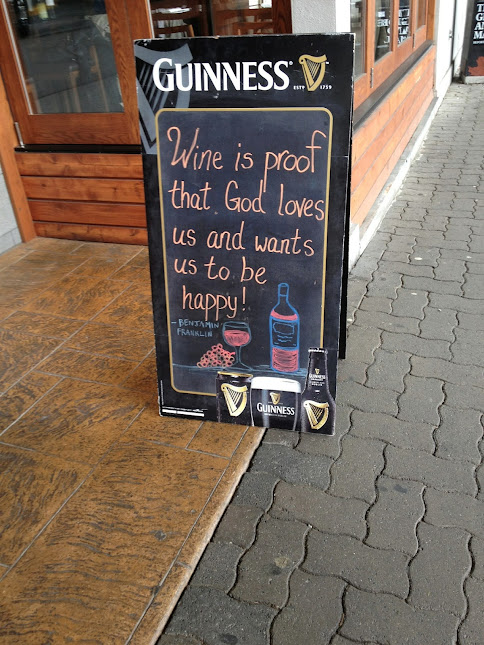 GUINNESS
ESTD 1759
Wine is proof
that God loves
us and wants
us to be
happy!
- BENJAMIN
FRANKLIN
GUINNESS
GUINNESS